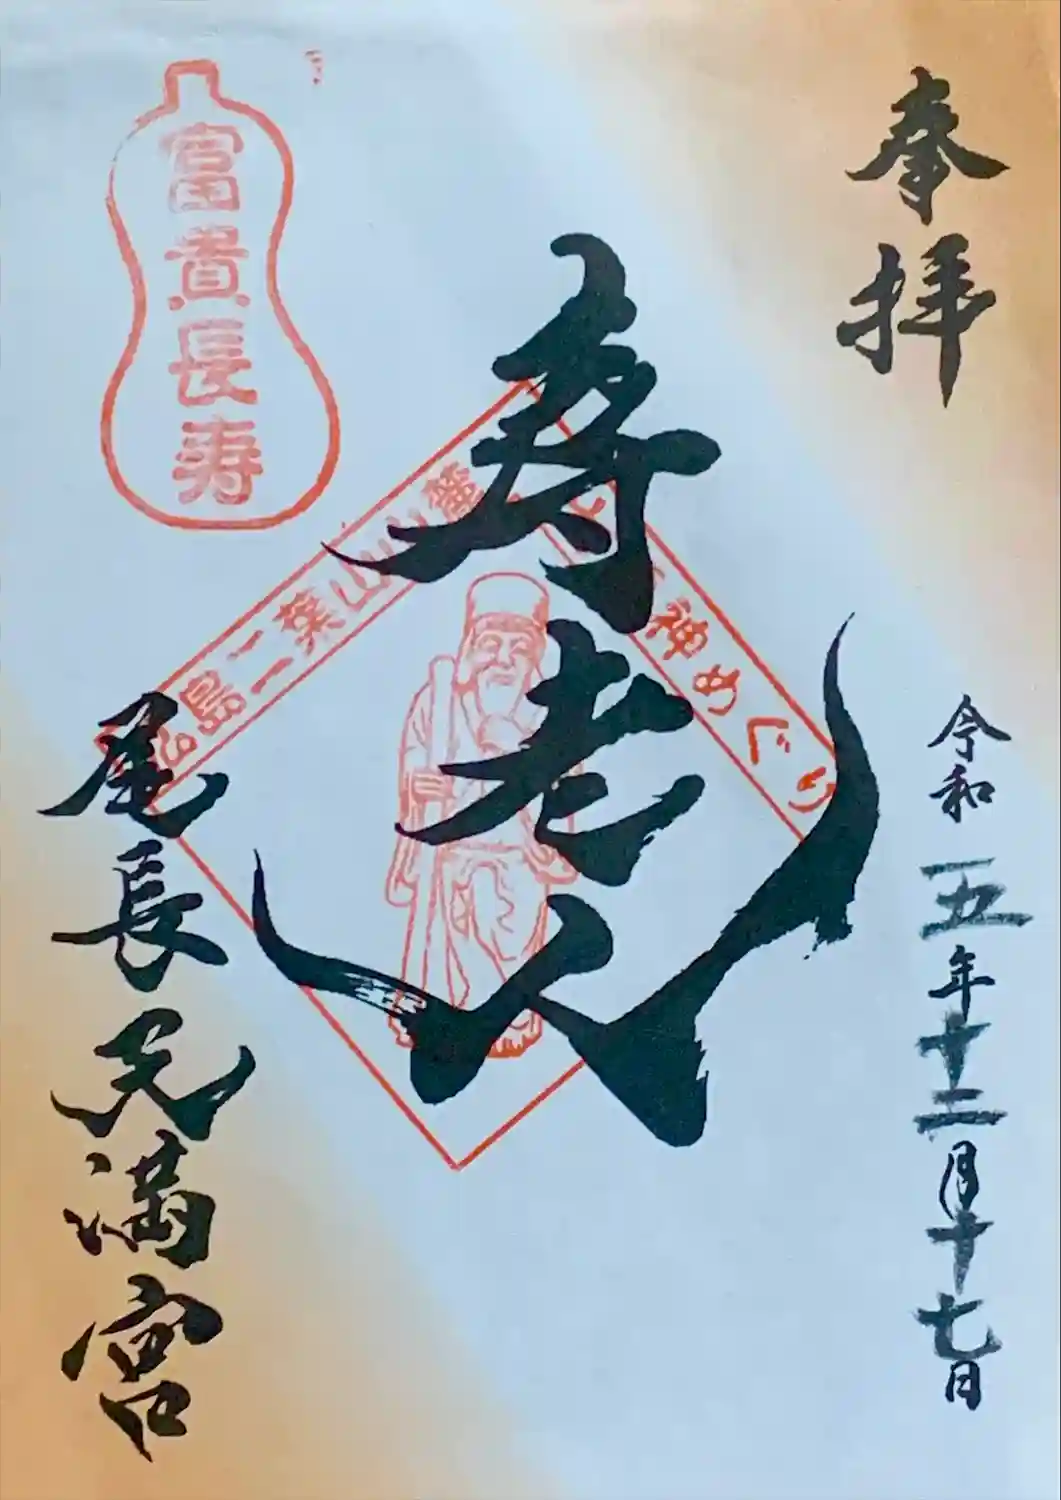 奉拝
令和五年十二月十七日
寿老人
富貴長寿
広島二葉山山麓
七福神めぐり
尾長天満宮